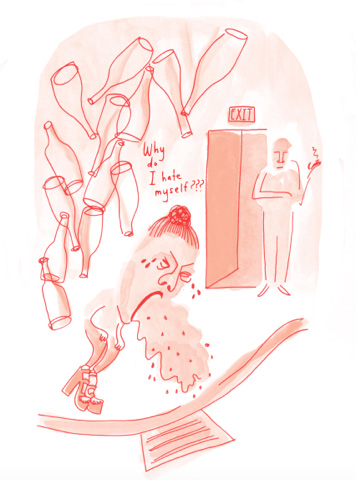 EXIT
Why
do
I hate
myself???